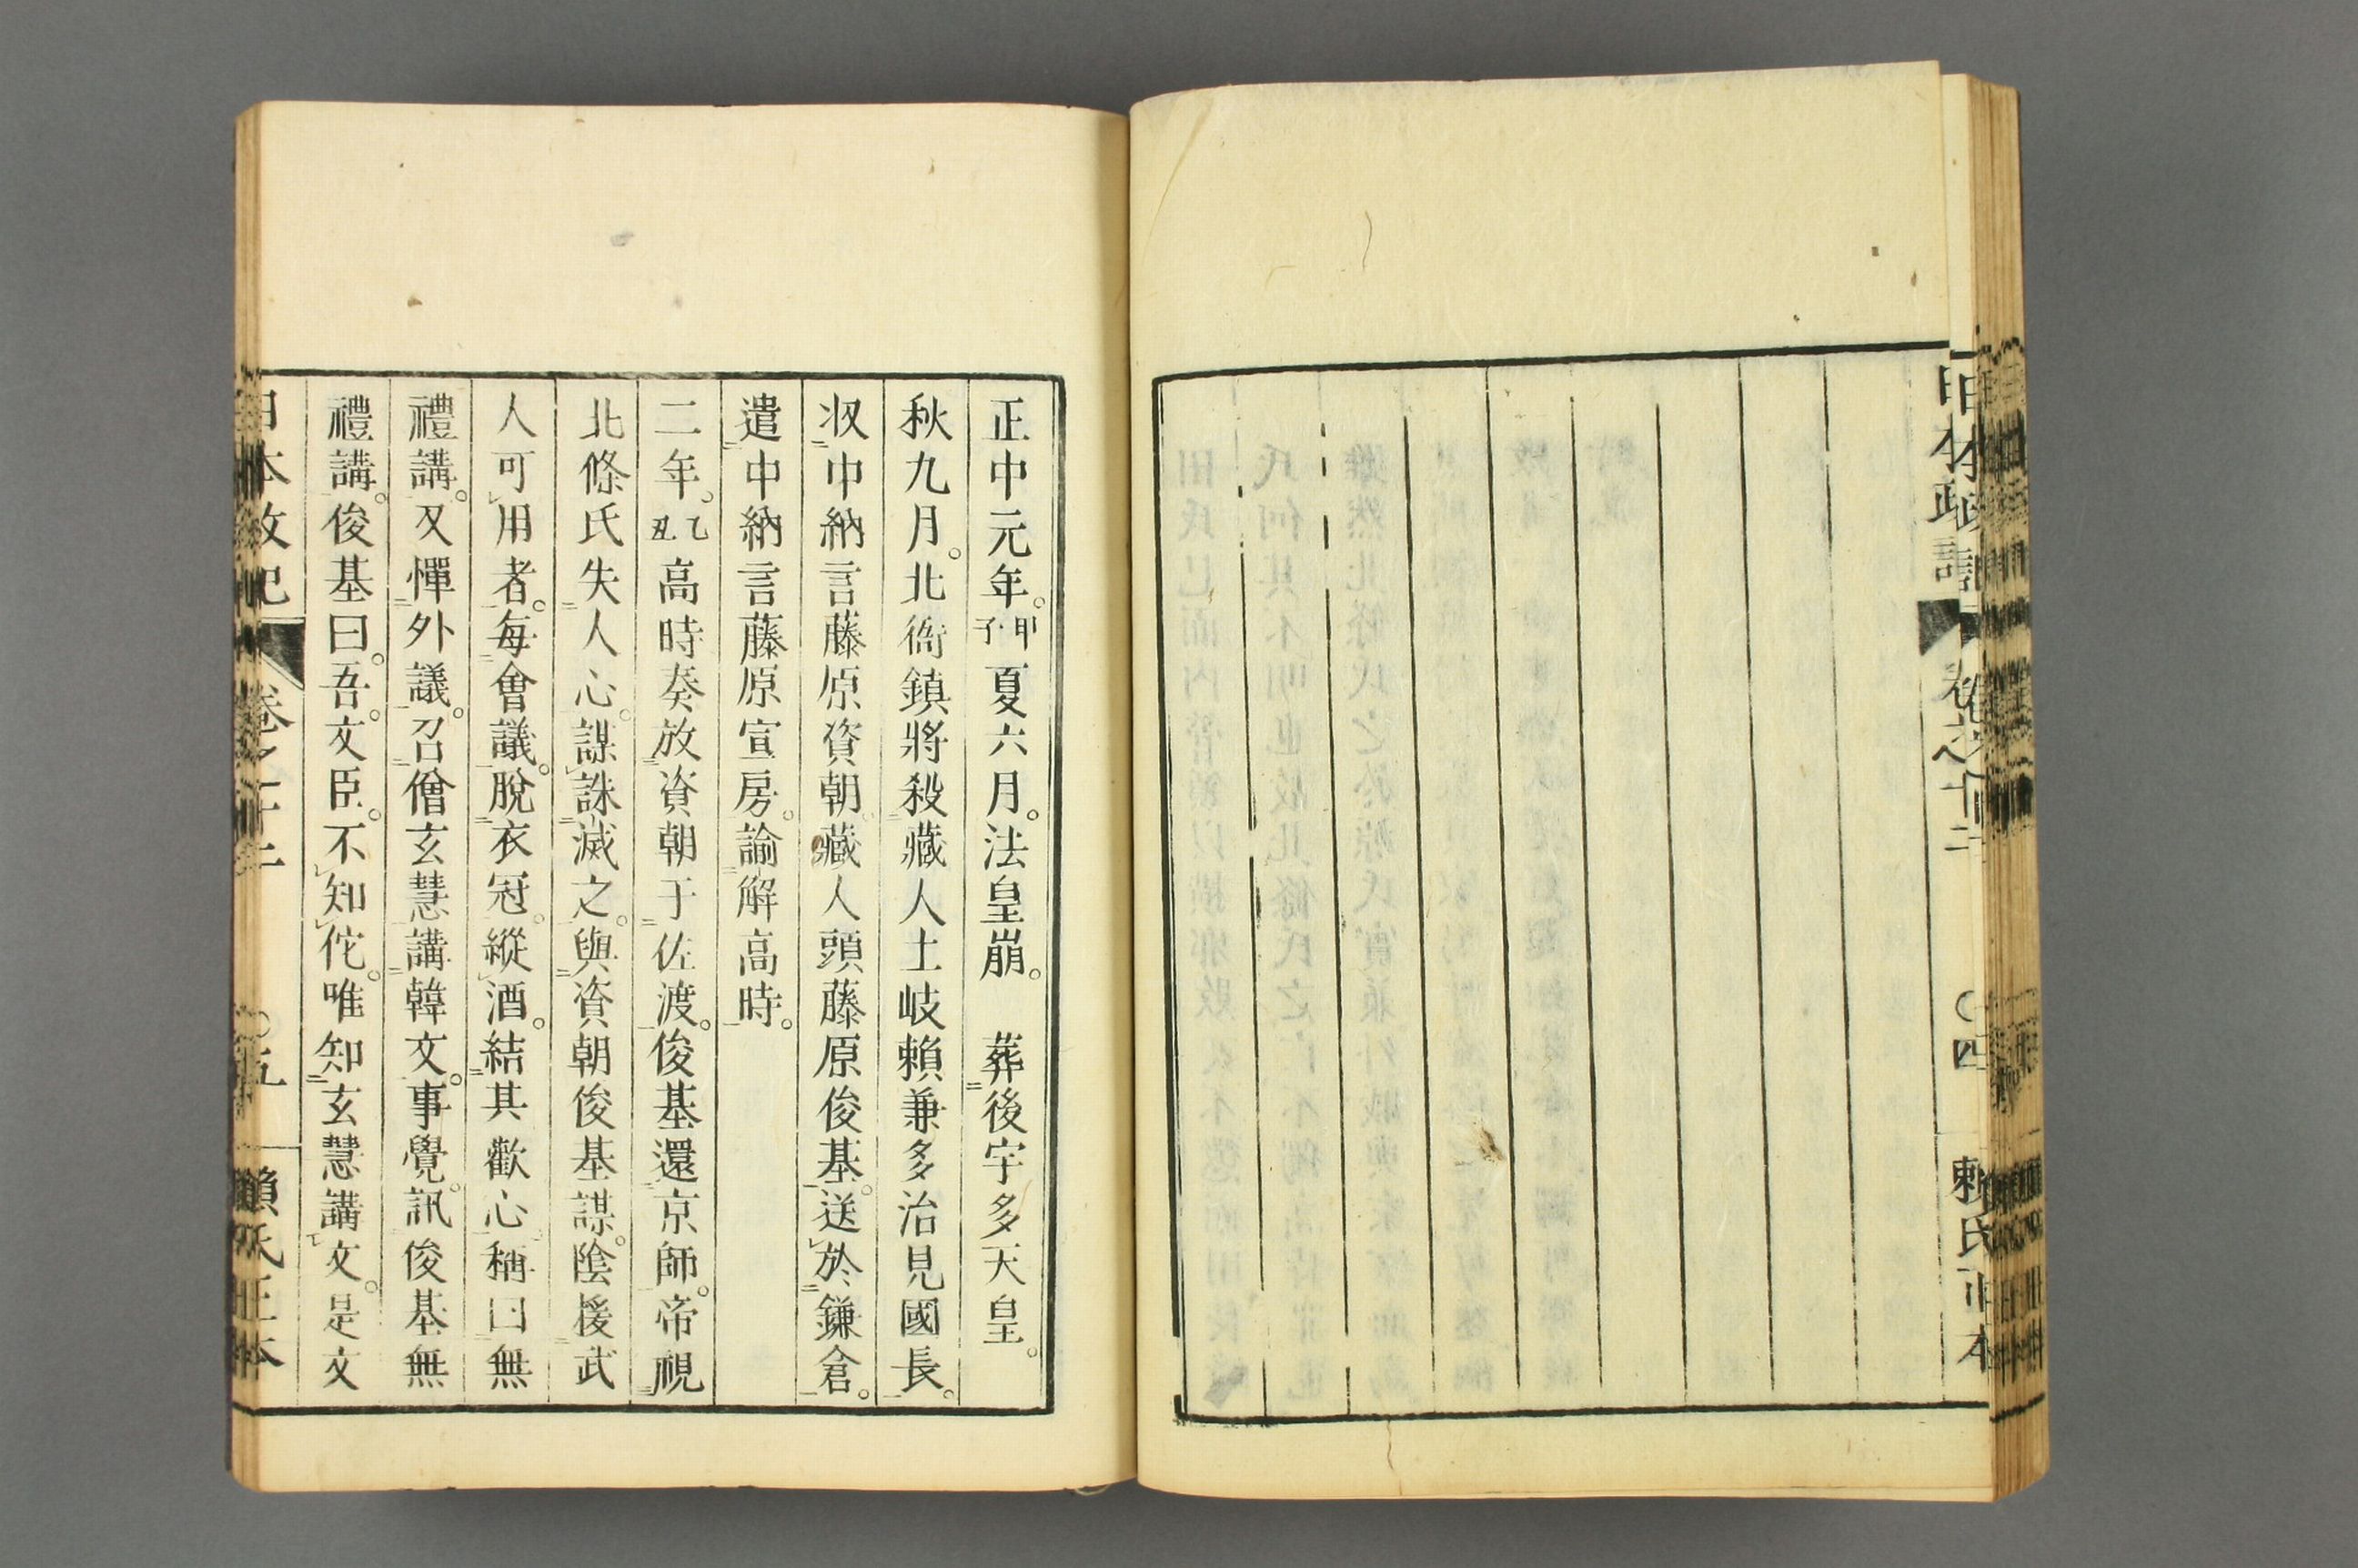 日本政記
卷之十二
〇四
賴氏正本
正中元年。甲子夏六月。法皇崩。 葬後宇多天皇。
秋九月。北衙鎮將殺藏人土岐賴兼多治見國長。
收中納言藤原資朝。藏人頭藤原俊基。送於鎌倉。
遣中納言藤原宣房。論解高時。
二年。乙丑高時奏放資朝于佐渡。俊基還京師。帝視
北條氏失人心。謀誅滅之。與資朝俊基謀。陰援武
人可用者。每會議。脫衣冠。縱酒。結其歡心。稱曰無
禮講。又憚外議。召僧玄慧講韓文。事覺。訊俊基無
禮講。俊基曰。吾。文臣。不知佗。唯知玄慧講文。是文
日本政記
卷之十二
〇五
賴氏正本